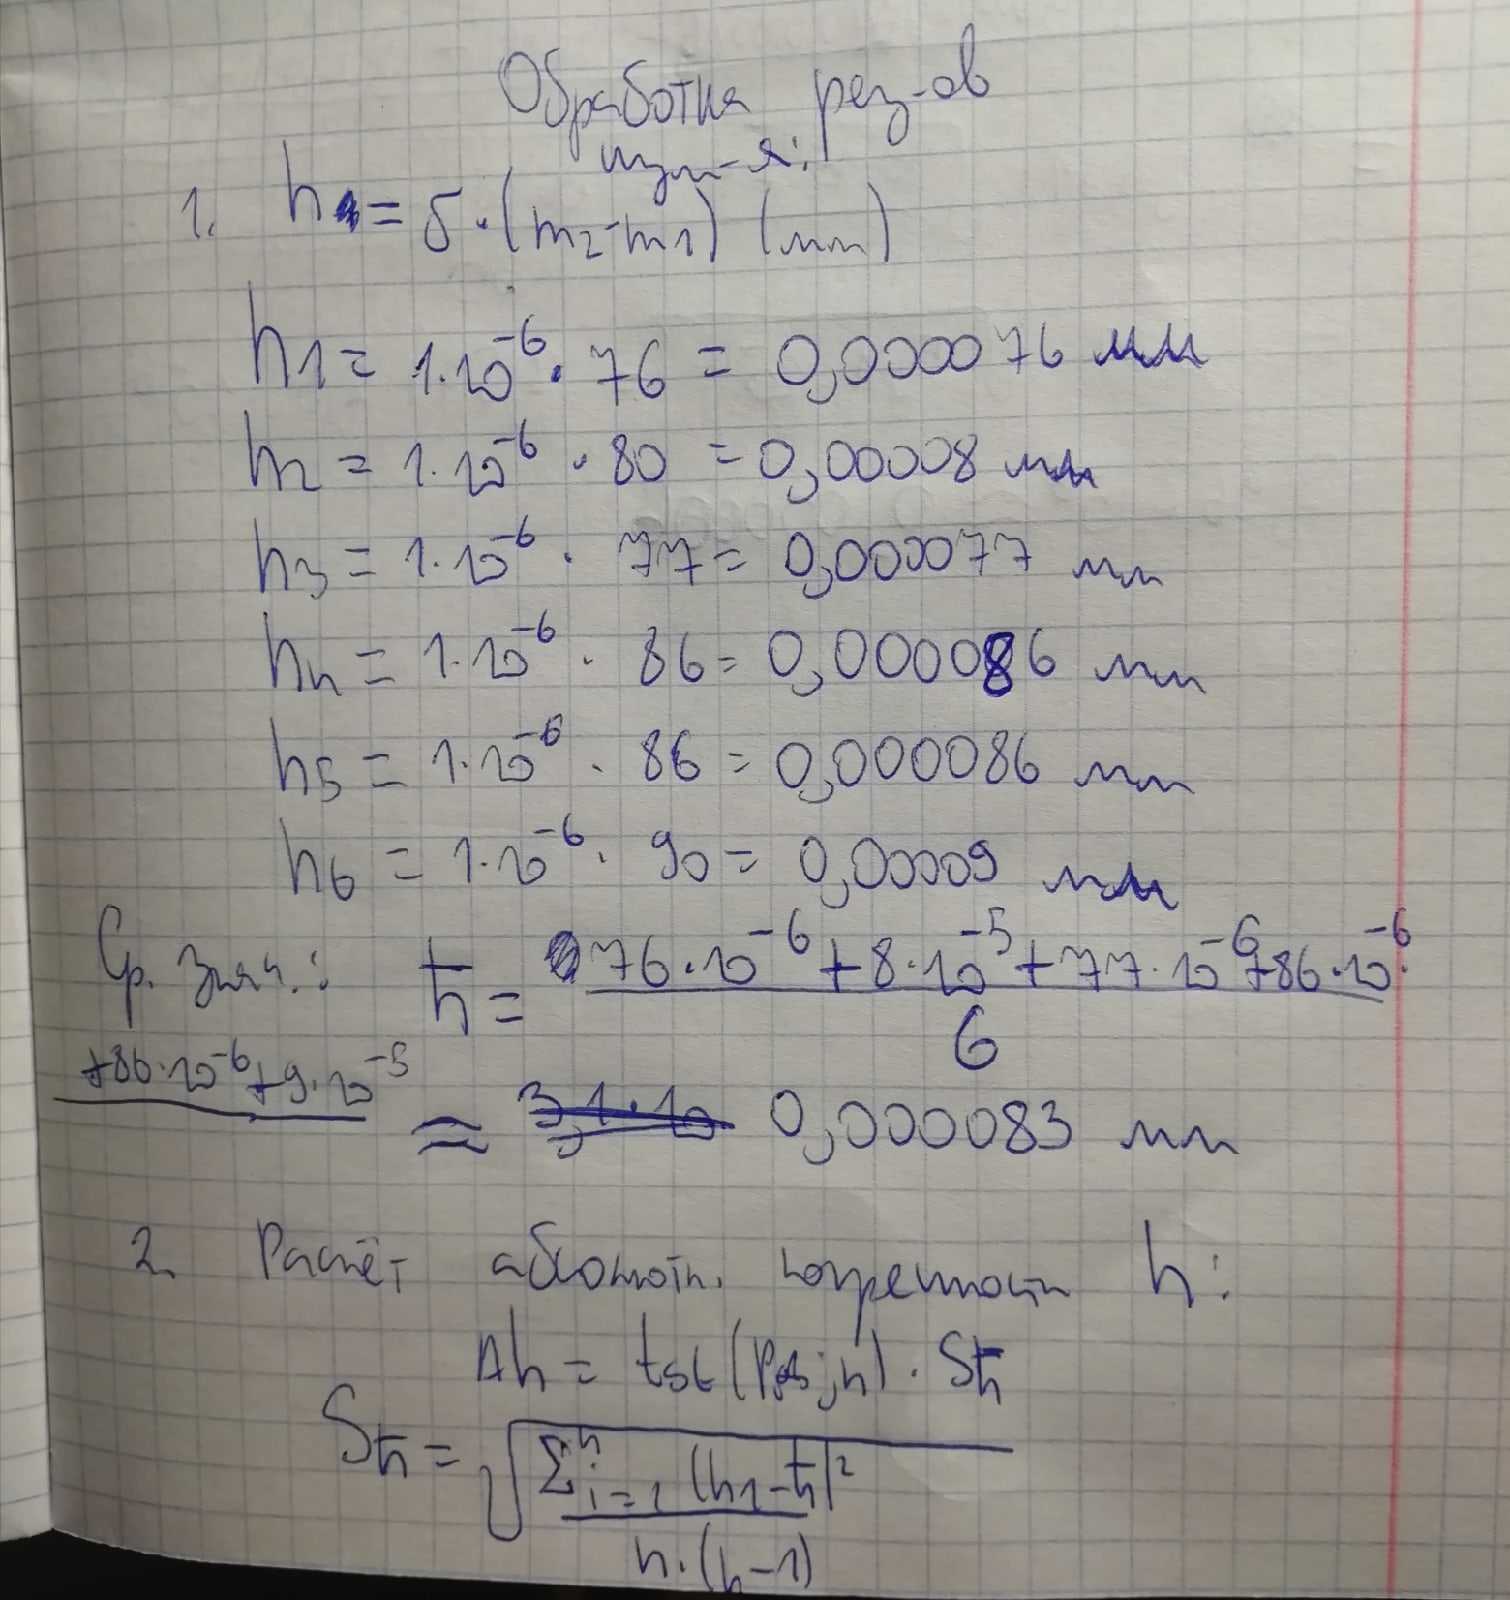 Обработка рез-ов
изм-я:
1. h = δ·(m2-m1) (мм)
h1 = 1·10⁻⁶ · 76 = 0,000076 мм
h2 = 1·10⁻⁶ · 80 = 0,00008 мм
h3 = 1·10⁻⁶ · 77 = 0,000077 мм
h4 = 1·10⁻⁶ · 86 = 0,000086 мм
h5 = 1·10⁻⁶ · 86 = 0,000086 мм
h6 = 1·10⁻⁶ · 90 = 0,00009 мм
Ср. знач.: h̄ = 76·10⁻⁶ + 8·10⁻⁵ + 77·10⁻⁶ + 86·10⁻⁶
6
+86·10⁻⁶ + 9·10⁻⁵
≈ 0,000083 мм
2. Расчёт абсолютн. погрешности h:
Δh = tst (; n) · Sh̄
Sh̄ = √ Σⁿi=1 (h1 - h̄)²
n·(n-1)